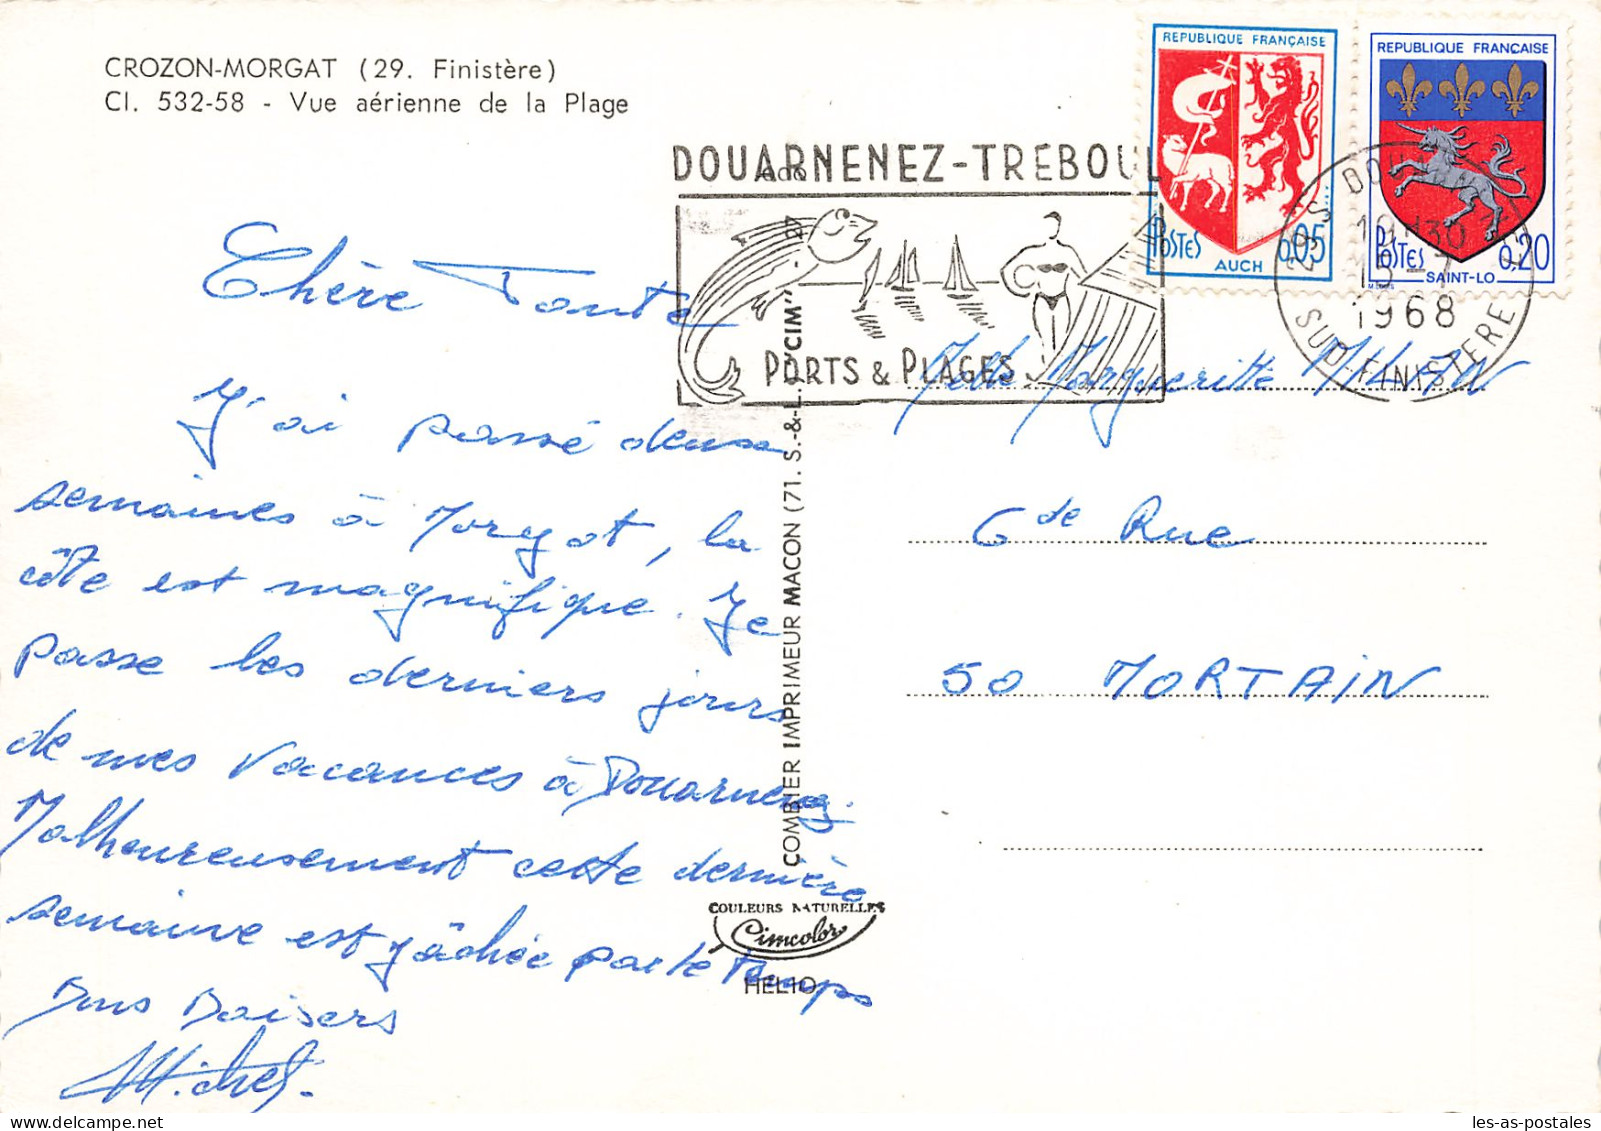 CROZON-MORGAT (29. Finistère)
Cl. 532-58 - Vue aérienne de la Plage
DOUARNENEZ-TREBOUL
PORTS & PLAGES
REPUBLIQUE FRANÇAISE
POSTES
0,05
AUCH
REPUBLIQUE FRANÇAISE
POSTES
0,20
SAINT-LO
1968
SUD-FINISTERE
Chère Tante
J'ai passé deux
semaines à Morgat, la
côte est magnifique. Je
passe les derniers jours
de mes vacances à Douarnenez.
Malheureusement cette dernière
semaine est gâchée par le temps
Bons Baisers
Michel.
COMBIER IMPRIMEUR MACON (71. S.-&-L.) "CIM"
COULEURS NATURELLES
Cimcolor
HELIO
Melle Margueritte
6 de Rue
50 MORTAIN
les-as-postales